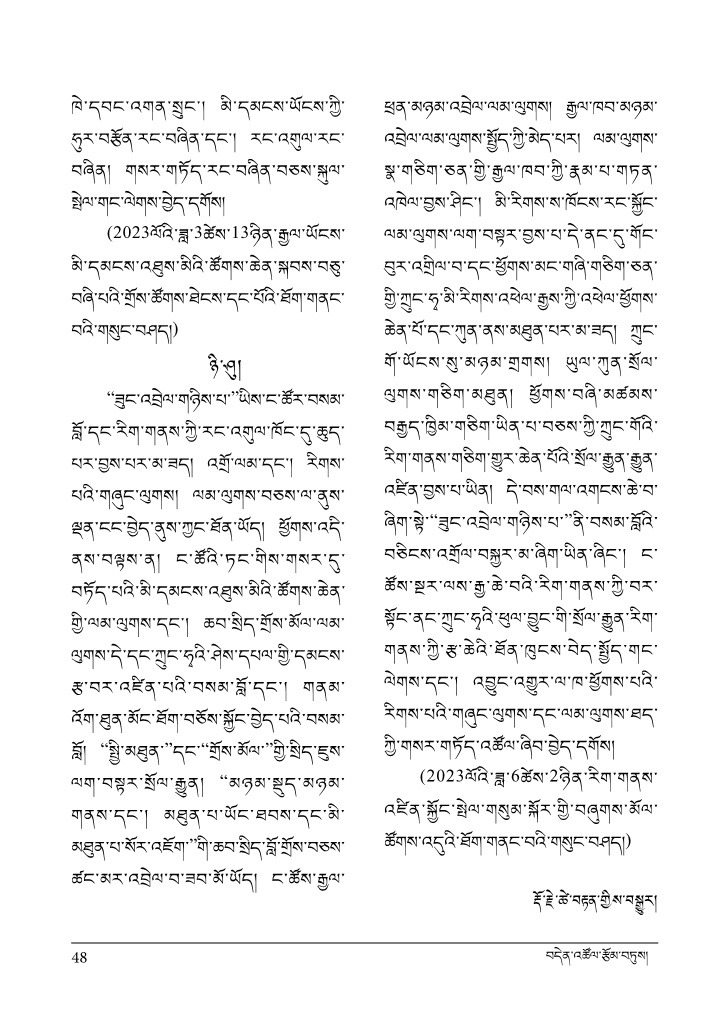 ཁེ་དབང་འགན་སྲུང་། མི་དམངས་ཡོངས་ཀྱི་
ཧུར་བརྩོན་རང་བཞིན་དང་། རང་འགུལ་རང་
བཞིན། གསར་གཏོད་རང་བཞིན་བཅས་སྐུལ་
སྤེལ་གང་ལེགས་བྱེད་དགོས།
(2023ལོའི་ཟླ་3ཚེས་13ཉིན་རྒྱལ་ཡོངས་
མི་དམངས་འཐུས་མིའི་ཚོགས་ཆེན་སྐབས་བཅུ་
བཞི་པའི་གྲོས་ཚོགས་ཐེངས་དང་པོའི་ཐོག་གནང་
བའི་གསུང་བཤད།)
ཉི་ཤུ།
“ཟུང་འབྲེལ་གཉིས་པ་”ཡིས་ང་ཚོར་བསམ་
བློ་དང་རིག་གནས་ཀྱི་རང་འགུལ་ཁོང་དུ་ཆུད་
པར་བྱས་པར་མ་ཟད། འགྲོ་ལམ་དང་། རིགས་
པའི་གཞུང་ལུགས། ལམ་ལུགས་བཅས་ལ་ནུས་
ལྡན་ངང་བྱེད་ནུས་ཀྱང་ཐོན་ཡོད། ཕྱོགས་འདི་
ནས་བལྟས་ན། ང་ཚོའི་ཏང་གིས་གསར་དུ་
བཏོད་པའི་མི་དམངས་འཐུས་མིའི་ཚོགས་ཆེན་
གྱི་ལམ་ལུགས་དང་། ཆབ་སྲིད་གྲོས་མོལ་ལམ་
ལུགས་དེ་དང་ཀྲུང་ཧྭའི་ཤེས་དཔལ་གྱི་དམངས་
རྩ་བར་འཛིན་པའི་བསམ་བློ་དང་། གནམ་
འོག་ཐུན་མོང་ཐོག་བཅོས་སྐྱོང་བྱེད་པའི་བསམ་
བློ། “སྤྱི་མཐུན་”དང་“གྲོས་མོལ་”གྱི་སྲིད་ཇུས་
ལག་བསྟར་སྲོལ་རྒྱུན། “མཉམ་སྡུད་མཉམ་
གནས་དང་། མཐུན་པ་ཡོང་ཐབས་དང་མི་
མཐུན་པ་སོར་འཇོག་”གི་ཆབ་སྲིད་བློ་གྲོས་བཅས་
ཚང་མར་འབྲེལ་བ་ཟབ་མོ་ཡོད། ང་ཚོས་རྒྱལ་
ཕྲན་མཉམ་འབྲེལ་ལམ་ལུགས། རྒྱལ་ཁབ་མཉམ་
འབྲེལ་ལམ་ལུགས་སྤྱོད་ཀྱི་མེད་པར། ལམ་ལུགས་
སྣ་གཅིག་ཅན་གྱི་རྒྱལ་ཁབ་ཀྱི་རྣམ་པ་གཏན་
འཁེལ་བྱས་ཤིང་། མི་རིགས་ས་ཁོངས་རང་སྐྱོང་
ལམ་ལུགས་ལག་བསྟར་བྱས་པ་དེ་ནང་དུ་གོང་
བུར་འགྲིལ་བ་དང་ཕྱོགས་མང་གཞི་གཅིག་ཅན་
གྱི་ཀྲུང་ཧྭ་མི་རིགས་འཕེལ་རྒྱས་ཀྱི་འཕེལ་ཕྱོགས་
ཆེན་པོ་དང་ཀུན་ནས་མཐུན་པར་མ་ཟད། ཀྲུང་
གོ་ཡོངས་སུ་མཉམ་གྲགས། ཡུལ་ཀུན་སྲོལ་
ལུགས་གཅིག་མཐུན། ཕྱོགས་བཞི་མཚམས་
བརྒྱད་ཁྱིམ་གཅིག་ཡིན་པ་བཅས་ཀྱི་ཀྲུང་གོའི་
རིག་གནས་གཅིག་གྱུར་ཆེན་པོའི་སྲོལ་རྒྱུན་རྒྱུན་
འཛིན་བྱས་པ་ཡིན། དེ་བས་གལ་འགངས་ཆེ་བ་
ཞིག་སྟེ་“ཟུང་འབྲེལ་གཉིས་པ་”ནི་བསམ་བློའི་
བཅིངས་འགྲོལ་བསྐྱར་མ་ཞིག་ཡིན་ཞིང་། ང་
ཚོས་སྔར་ལས་རྒྱ་ཆེ་བའི་རིག་གནས་ཀྱི་བར་
སྟོང་ནང་ཀྲུང་ཧྭའི་ཕུལ་བྱུང་གི་སྲོལ་རྒྱུན་རིག་
གནས་ཀྱི་རྩ་ཆེའི་ཐོན་ཁུངས་བེད་སྤྱོད་གང་
ལེགས་དང་། འབྱུང་འགྱུར་ལ་ཁ་ཕྱོགས་པའི་
རིགས་པའི་གཞུང་ལུགས་དང་ལམ་ལུགས་ཐད་
ཀྱི་གསར་གཏོད་འཚོལ་ཞིབ་བྱེད་དགོས།
(2023ལོའི་ཟླ་6ཚེས་2ཉིན་རིག་གནས་
འཛིན་སྐྱོང་སྤེལ་གསུམ་སྐོར་གྱི་བཞུགས་མོལ་
ཚོགས་འདུའི་ཐོག་གནང་བའི་གསུང་བཤད།)
རྡོ་རྗེ་ཚེ་བརྟན་གྱིས་བསྒྱུར།
48
བདེན་འཚོལ་རྩོམ་བཏུས།